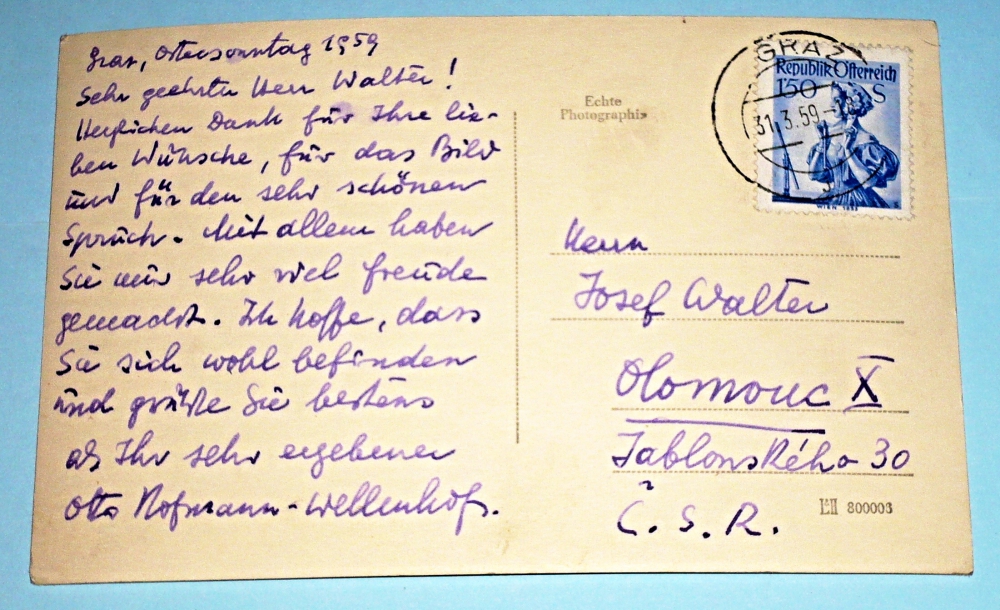 Graz, Ostersonntag 1959
Sehr geehrter Herr Walter!
Herzlichen Dank für Ihre lie-
ben Wünsche, für das Bild
und für den sehr schönen
Spruch. Mit allem haben
Sie mir sehr viel Freude
gemacht. Ich hoffe, dass
Sie sich wohl befinden
und grüße Sie bestens
als Ihr sehr ergebener
Otto Hofmann-Wellenhof.
Echte
Photographie
GRAZ
31.3.59
Republik Österreich
1'50 S
WIEN 1837
Herrn
Josef Walter
Olomouc X
Jablonského 30
Č. S. R.
LII 800003